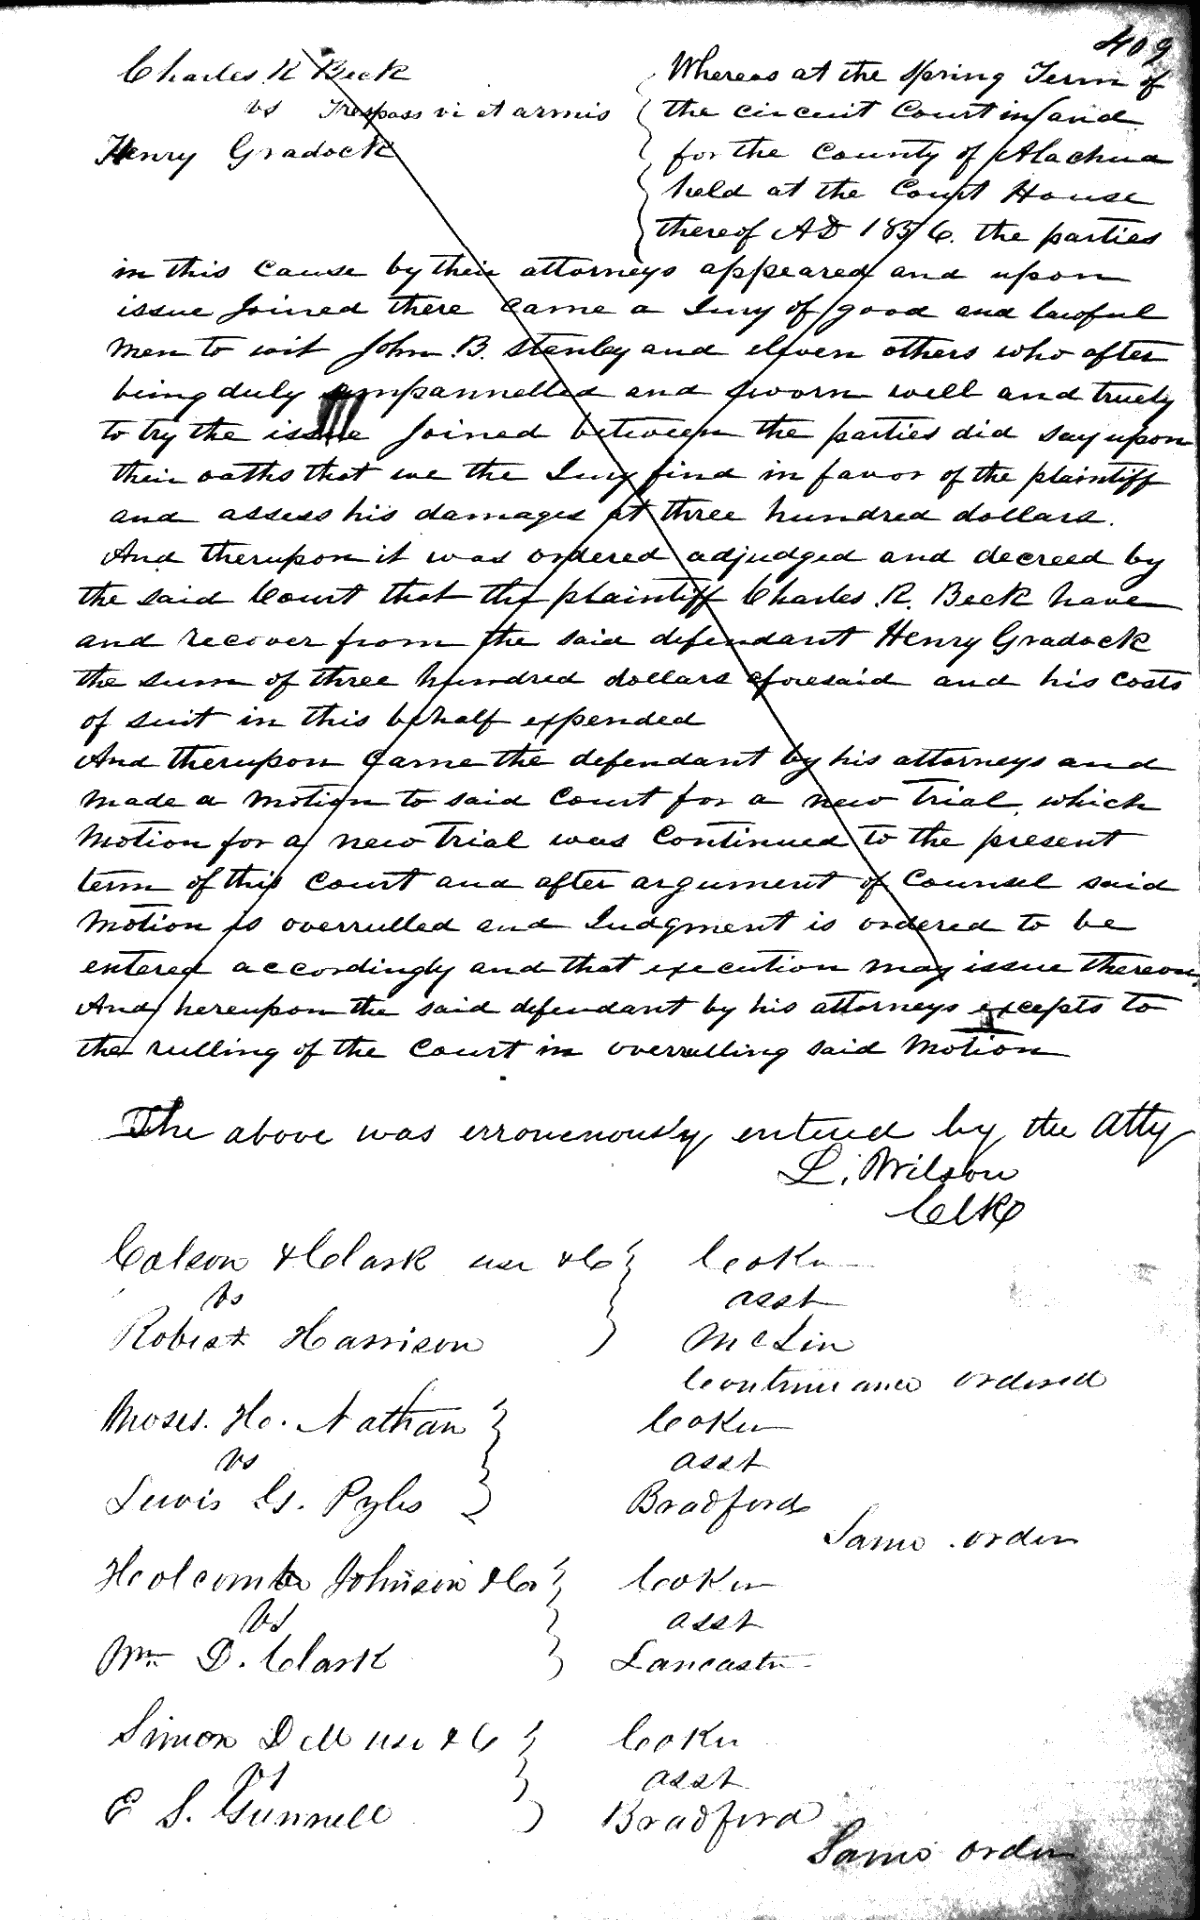 409
Charles R Beck
vs Trespass vi et armis
Henry Gradock
Whereas at the Spring Term of
the circuit Court in and
for the County of Alachua
held at the Court House
thereof AD 1856. the parties
in this cause by their attorneys appeared and upon
issue Joined there came a Jury of good and lawful
men to wit John B. Stanley and eleven others who after
being duly empannelled and sworn well and truely
to try the issue Joined between the parties did say upon
their oaths that we the Jury find in favor of the plaintiff
and assess his damages at three hundred dollars.
And therupon it was ordered adjudged and decreed by
the said Court that the plaintiff Charles R. Beck have
and recover from the said defendant Henry Gradock
the sum of three hundred dollars aforesaid and his costs
of suit in this behalf expended
And therupon came the defendant by his attorneys and
made a motion to said Court for a new Trial, which
Motion for a new Trial was Continued to the present
term of this Court and after argument of Counsel said
Motion is overrulled and Judgment is ordered to be
entered accordingly and that execution may issue thereon,
And hereupon the said defendant by his attorneys excepts to
the rulling of the Court in overrulling said Motion
The above was erronenously entered by the Atty
L. Wilson
Clk
Colson & Clark use &C
vs
Robert Harrison
Coker
asst
McLin
Continuance ordered
Moses. H. Nathan
vs
Lewis G. Pyles
Coker
asst
Bradford
Same order
Holcombe Johnson & Co
vs
Wm D. Clark
Coker
asst
Lancaster
Simon Dell use & C
vs
E S. Gunnell
Coker
asst
Bradford
Same order